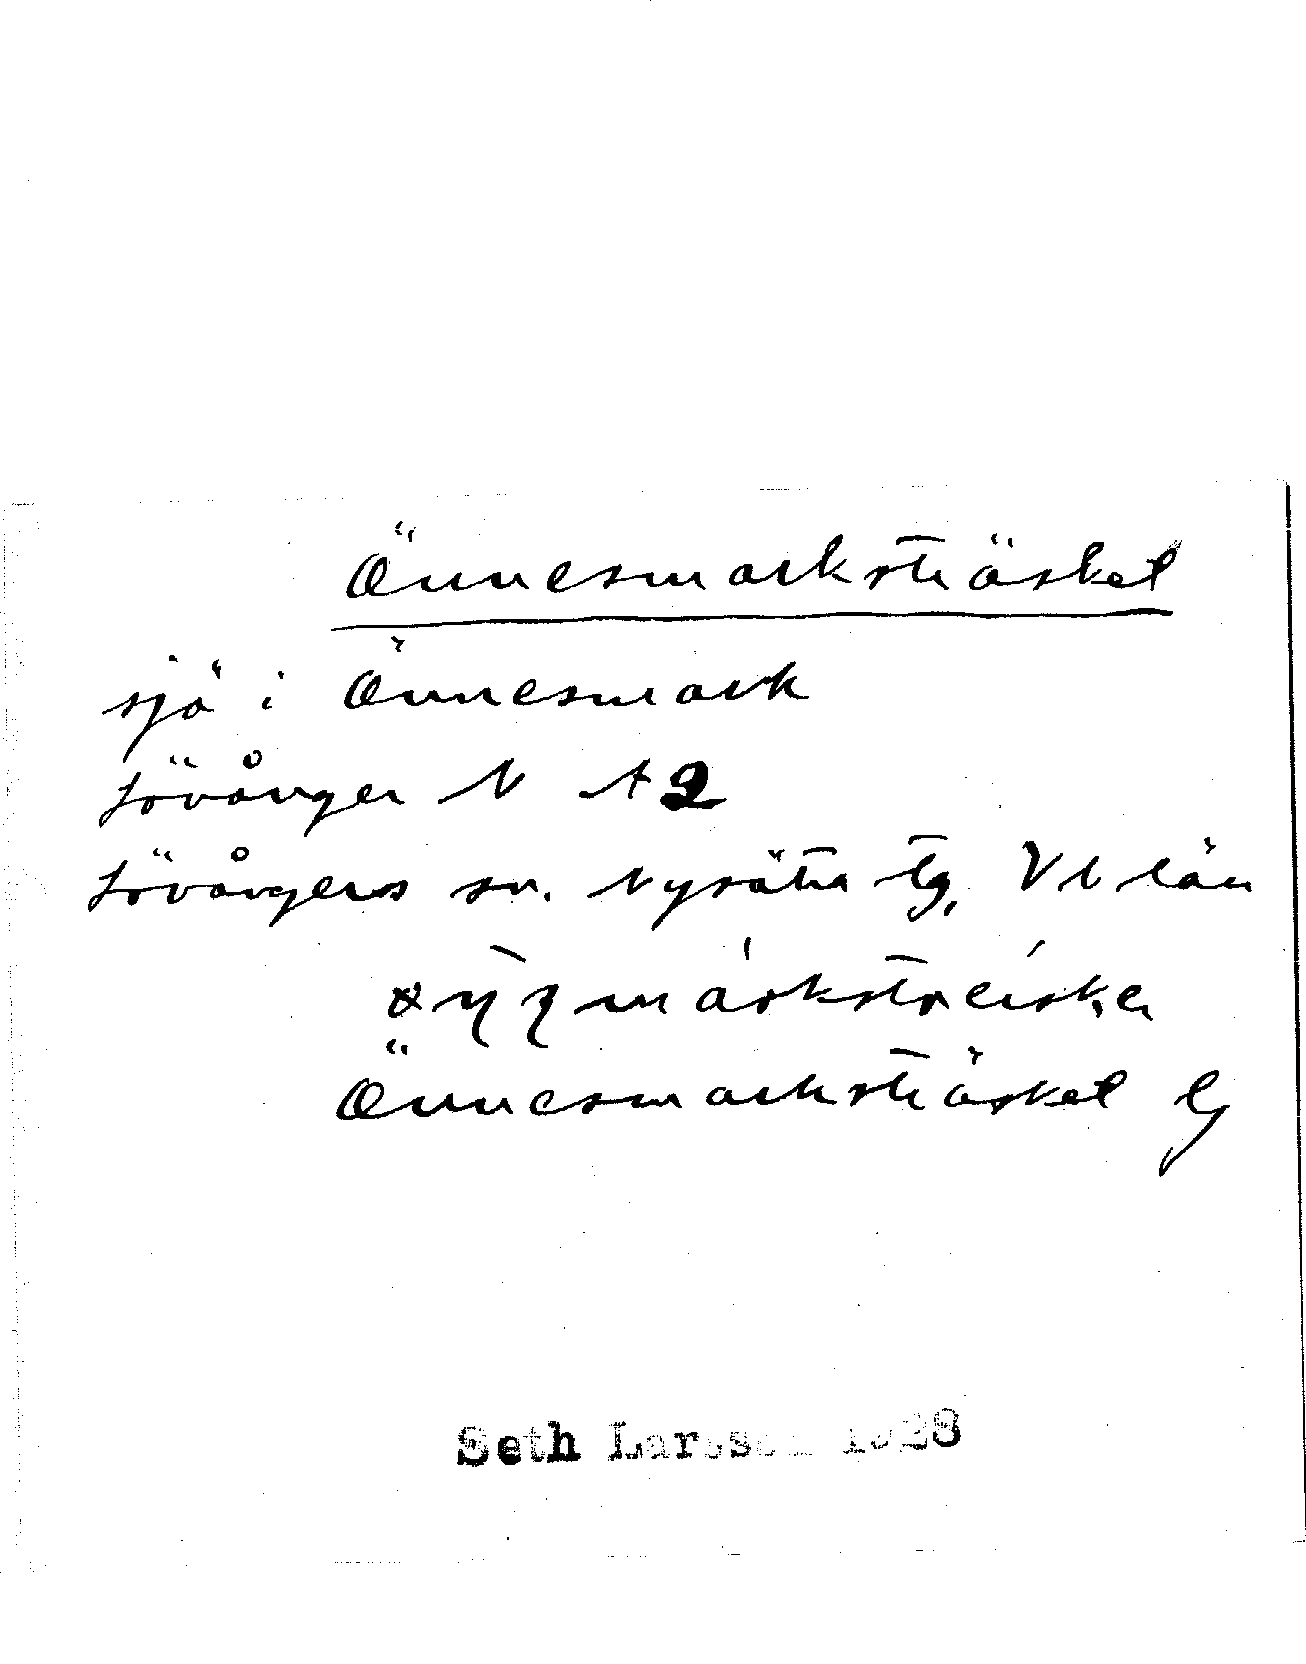 Önnesmarksträsket
sjö i Önnesmark
Lövånger N A 2
Lövångers sn. Nysätra tg, Vb län
Önnesmarksträsket
Seth Larsson 1928